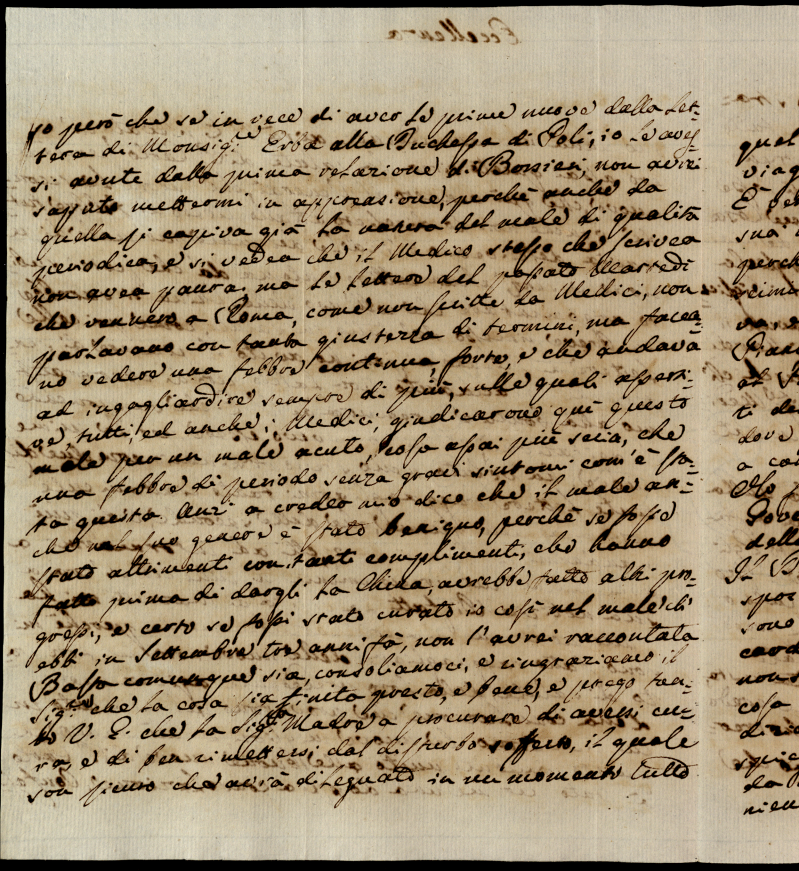 Eccellenza
so però che se in vece di aver le prime nuove dalla Let-
tera di Monsig.r Erba alla Duchessa di Poli, io le aves-
si avute dalla prima relazione di Borsieri, non avrei
saputo mettermi in apprensione, perchè anche da
quella si capiva già la natura del male di qualità
periodica, e si vedea che il Medico stesso che scrivea
non avea paura: ma le lettere del passato Martedì
che vennero a Roma, come non scritte da Medici, non
parlavano con tanta giustezza di termini, ma facea-
no vedere una febbre continua, forte, e che andava
ad ingagliardire sempre di più, sulle quali asserti-
ve, tutti, ed anche i Medici, giudicarono quì questo
male per un male acuto, cosa assai più seria, che
una febbre di periodo senza gravi sintomi com'è sta-
ta questa. Anzi a creder mio dico che il male an-
che nel suo genere è stato benigno, perchè se fosse
stato altrimenti con tanti complimenti, che hanno
fatto prima di dargli la China, avrebbe fatto altri pro-
gressi, e certo se fossi stato curato io così nel male ch'
ebbi in Settembre tre anni fà, non l'avrei raccontata
Basta comunque sia, consoliamoci, e ringraziamo il
Sig.re che la cosa sia finita presto, e bene, e prego tan-
to V. E. che la Sig.ra Madre a procurare di aversi cu-
ra, e di ben rimettersi dal disturbo sofferto, il quale
son sicuro che avrà dileguato in un momento tutto
quel
viag
sua
perch
ti de
dove
a ca
Gove
della
Il B
spor
sono
card
non
cosa
di
da
nien